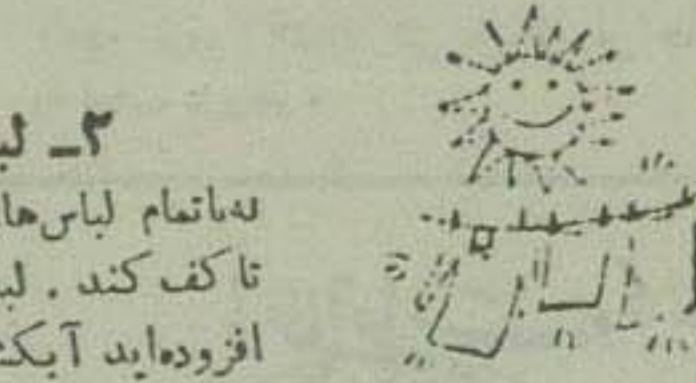 ۳ــ لبـ
تمام لباس‌ها
تا کف کند . لبـ
افزوده‌اید آبکشـ